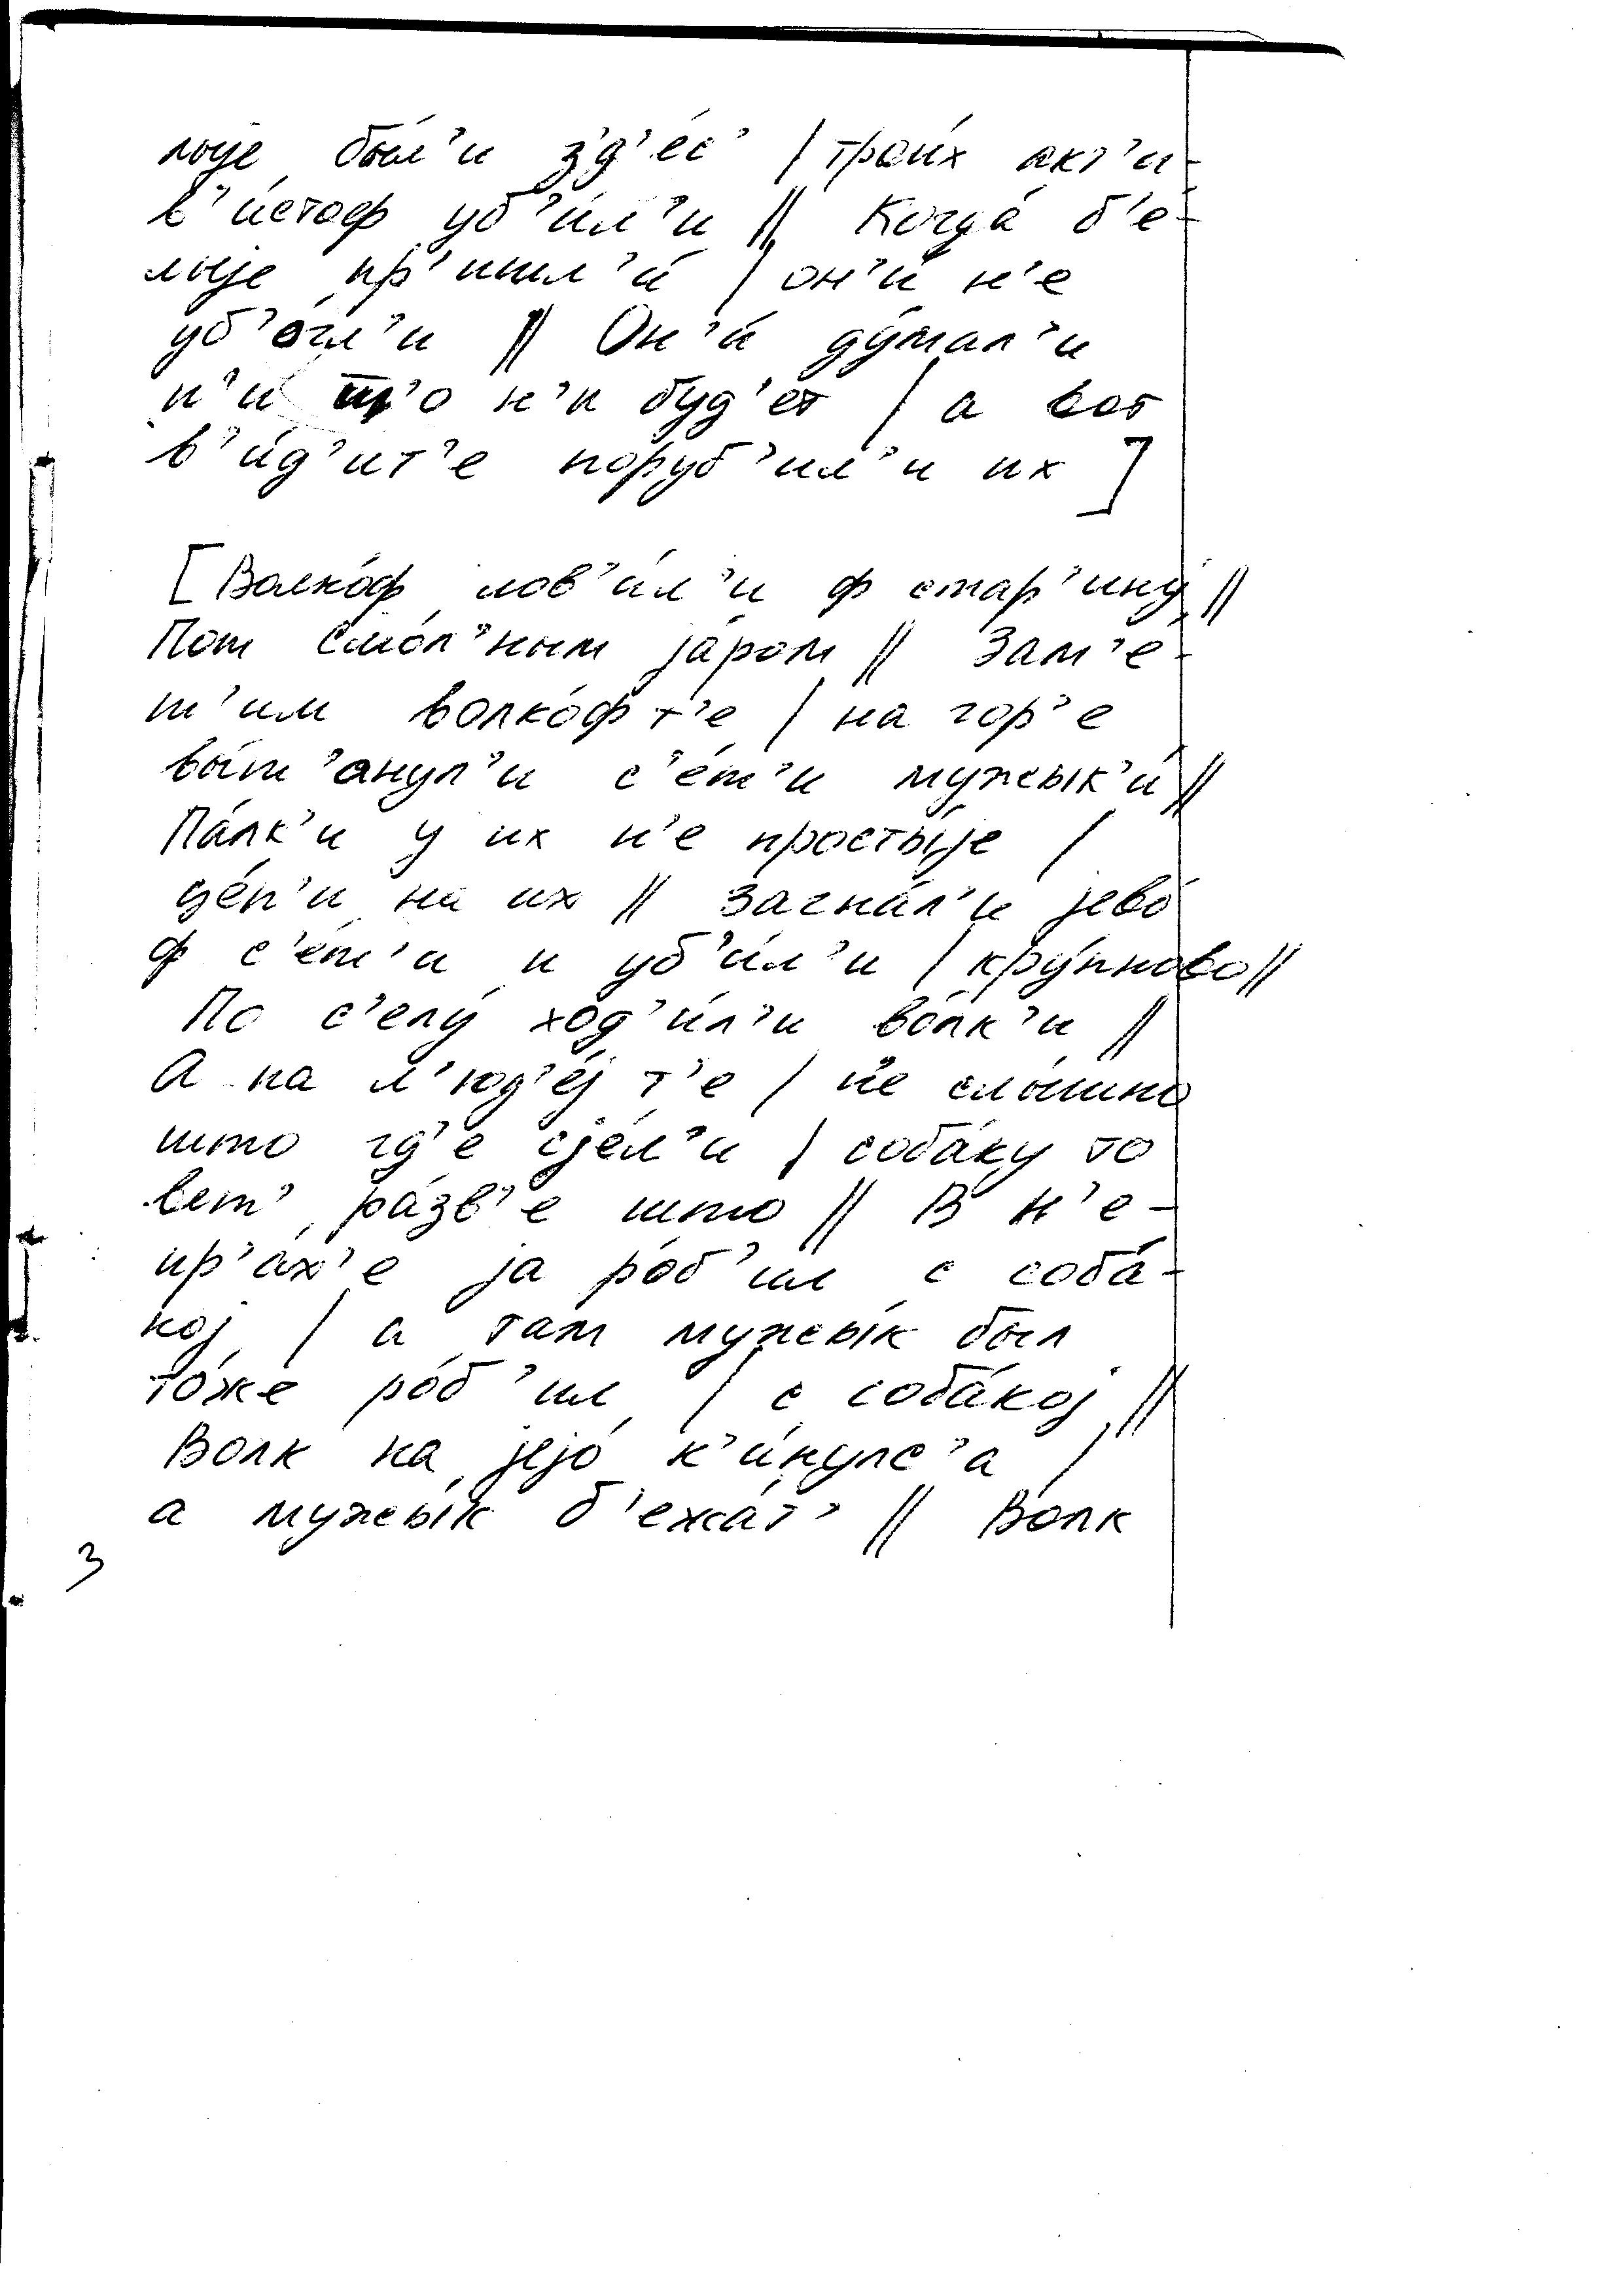 лыje бы́л'и з'д'е́с' / трои́х акт'и-
в'и́стоф уб'и́л'и // Когда́ б'е́-
лыje пр'ишл'и́ / он'и́ н'е
уб'о́гл'и // Он'и́ ду́мал'и
н'и ш'о н'и буд'ет / а вот
в'и́д'ит'е поруб'ил'и их ]
[ Волко́ф лов'и́л'и ф стар'ину́ //
Пот Смо́л'ным jа́ром // Зам'е́-
т'им волко́ф т'е / на гор'е
вы́т'анул'и с'е́т'и мужык'и́ //
Па́лк'и у их н'е просты́je /
це́п'и на их // Загна́л'и jево́
ф с'е́т'и и уб'и́л'и / кру́пново //
По с'елу́ ход'и́л'и во́лк'и //
А на л'юд'е́j т'е / н'е слы́шно
што гд'е сjе́л'и / соба́ку то
вет' ра́зв'е што // В Н'е-
пр'а́х'е jа ро́б'ил с соба́-
коj / а там мужы́к был
то́же ро́б'ил / с соба́коj //
Волк на jеjо́ к'и́нулс'а /
а мужы́к б'ежа́т' // Волк
3